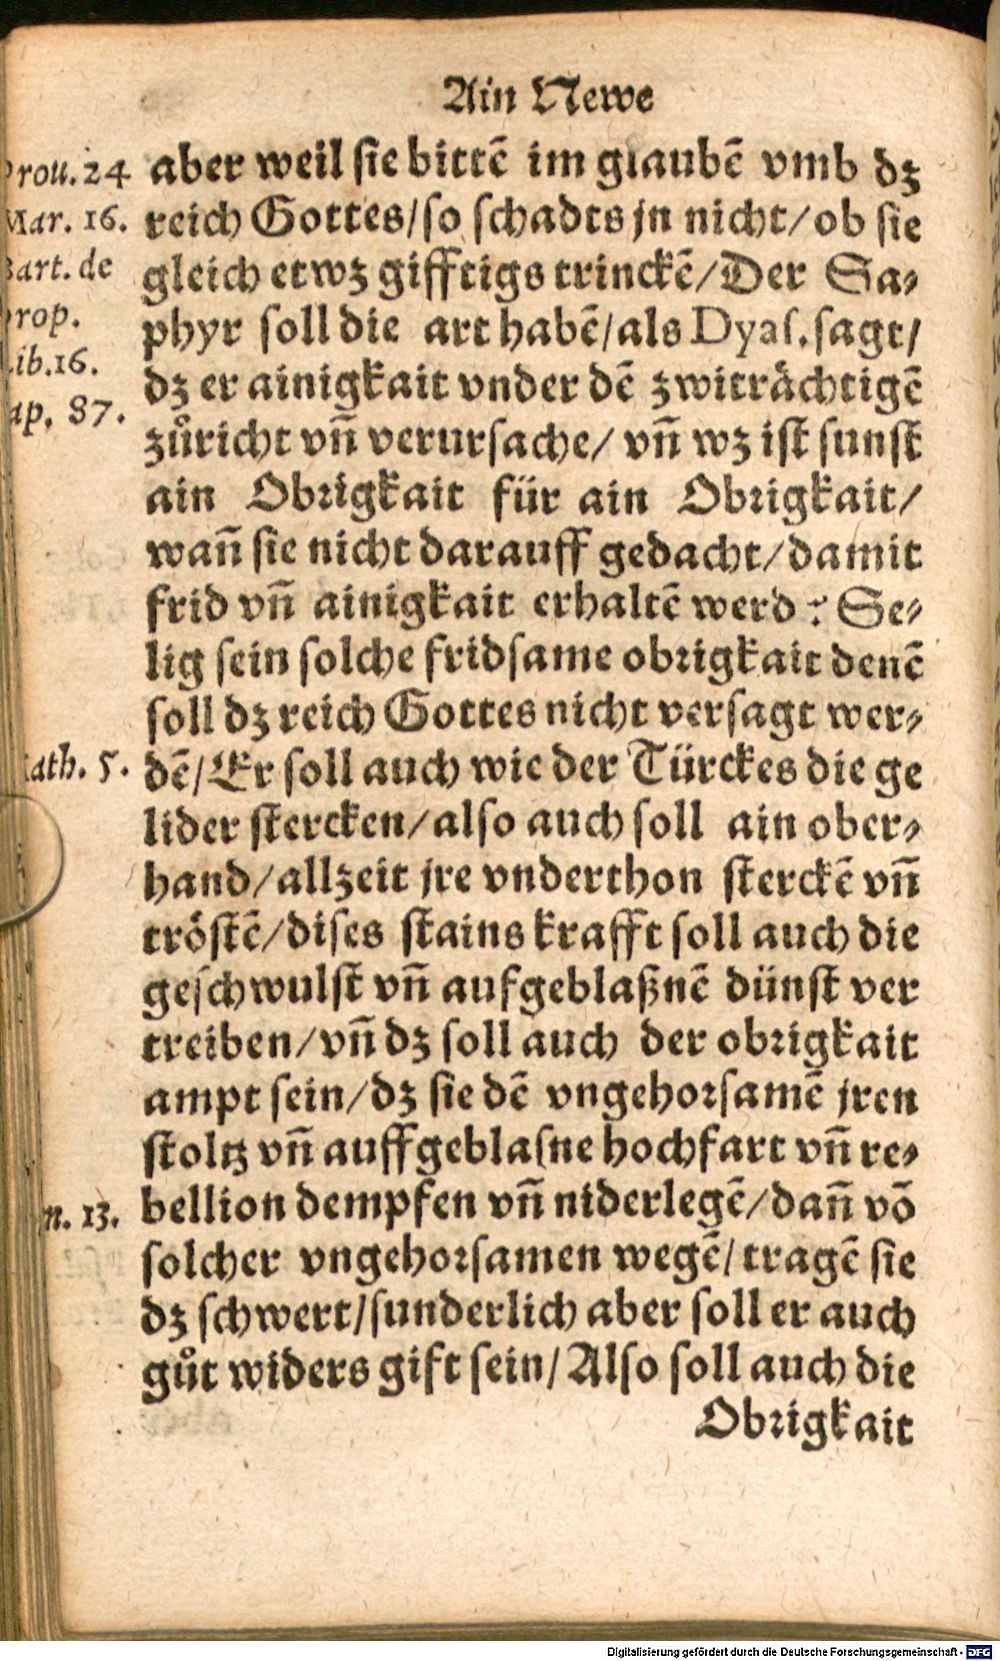 Ain Newe
aber weil sie bittē im glaubē vmb dz
reich Gottes/so schadts jn nicht/ob sie
gleich etwz gifftigs trinckē/Der Sa-
phyr soll die art habē/als Dyas.sagt/
dz er ainigkait vnder dē zwiträchtigē
zůricht vñ verursache/ vñ wz ist sunst
ain Obrigkait für ain Obrigkait/
wañ sie nicht darauff gedacht/damit
frid vñ ainigkait erhaltē werd? Se-
lig sein solche fridsame obrigkait denē
soll dz reich Gottes nicht versagt wer-
dē/Er soll auch wie der Türckes die ge
lider stercken/also auch soll ain ober-
hand/allzeit jre vnderthon sterckē vñ
tröstē/dises stains krafft soll auch die
geschwulst vñ aufgeblaßnē dünst ver
treiben/vñ dz soll auch der obrigkait
ampt sein/dz sie dē vngehorsamē jren
stoltz vñ auffgeblasne hochfart vñ re-
bellion dempfen vñ niderlegē/dañ vō
solcher vngehorsamen wegē/tragē sie
dz schwert/sunderlich aber soll er auch
gůt widers gift sein/Also soll auch die
Obrigkait
rou. 24
Mar. 16.
Bart. de
rop.
ib.16.
ap. 87.
ath. 5.
n. 13.
Digitalisierung gefördert durch die Deutsche Forschungsgemeinschaft - DFG